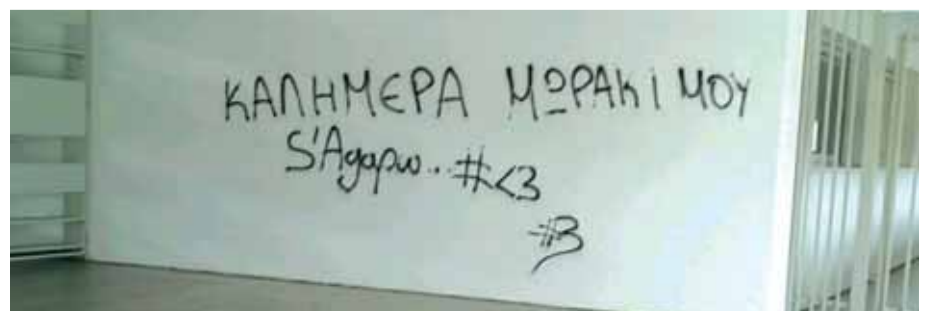 ΚΑΛΗΜΕΡΑ ΜΩΡΑΚΙ ΜΟΥ
S'Agapw.. #<3
#3